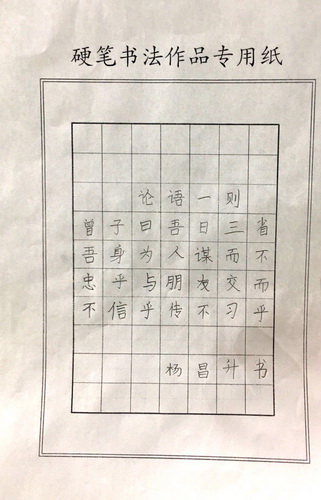 硬笔书法作品专用纸
论语一则
曾子曰吾日三省
吾身为人谋而不
忠乎与朋友交而
不信乎传不习乎
杨昌升书